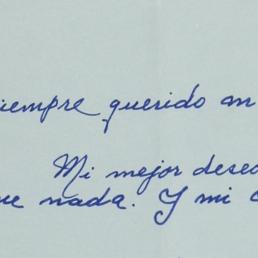 siempre querido am
Mi mejor deseo
ue nada. Y mi